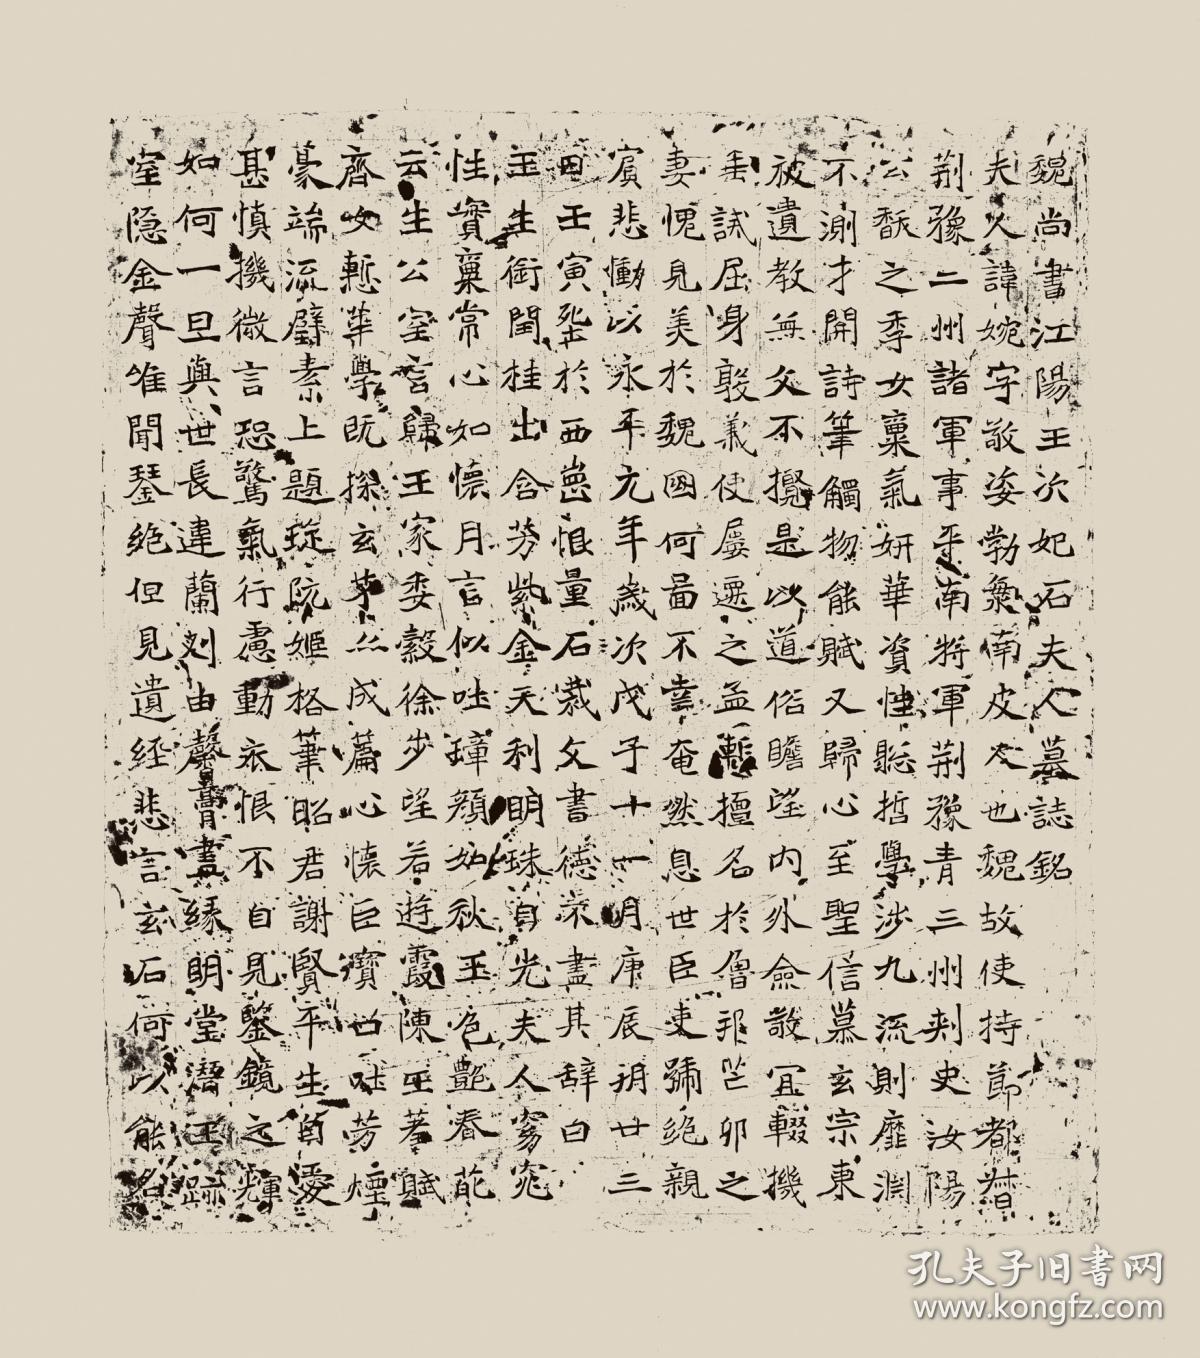 魏尚書江陽王次妃石夫人墓誌銘
夫人諱婉字敬姿勃海南皮人也魏故使持節都督
荆豫二州諸軍事平南將軍荆豫青三州刺史汝陽
公馛之季女稟氣妍華資性聡哲學涉九流則靡淵
不測才關詩筆觸物能賦又歸心至聖信慕玄宗東
被遺教無文不攬是以道俗瞻望内外僉敬冝輟機
垂試屈身敦義使屡遷之孟慙擅名於魯邦芒卯之
妻愧見美於魏國何啚不幸奄然息世臣吏號絶親
賓悲慟以永平元年歲次戊子十一月庚辰朔廿三
日壬寅塟於西崗恨量石裁文書德不盡其辞曰
玉生衘閏桂出含芳紫金天利明珠自光夫人窈窕
性實稟常心如懷月言似吐璋顔如秋玉色艷春葩
云生公室言歸王家委縠徐步望若遊霞陳王著賦
齊女慙華學既探玄才亦成篇心懷巨寳口吐芳煙
豪端流璧素上題琁阮姬格筆昭君謝賢平生自愛
甚慎機微言恐驚氣行慮動衣恨不自見鑒鏡之輝
如何一旦與世長違蘭由馨膏盡緣明堂潛玉跡
室隐金聲唯聞琴絶但見遺經悲言玄石何以能名
孔夫子旧书网
www.kongfz.com